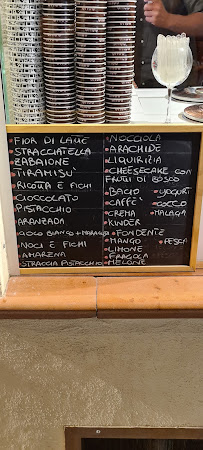 FIOR DI LATTE
STRACCIATELLA
ZABAIONE
TIRAMISU'
RICOTTA E FICHI
CIOCCOLATO
PISTACCHIO
ARANZADA
CIOCO BIANCO + MARACUJA
NOCI E FICHI
AMARENA
STRACCIA PISTACCHIO
NOCCIOLA
ARACHIDE
LIQUIRIZIA
CHEESECAKE CON
FRUTTI DI BOSCO
BACIO YOGURT
CAFFE' COCCO
CREMA MALAGA
KINDER
FONDENTE
MANGO PESCA
LIMONE
FRAGOLA
MELONE